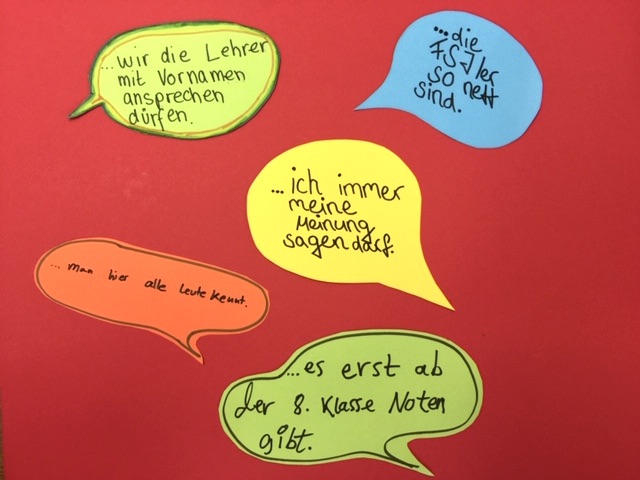 ...wir die Lehrer
mit Vornamen
ansprechen
dürfen.
...die
FSJler
so nett
sind.
...ich immer
meine
Meinung
sagen darf.
... man hier alle Leute kennt.
...es erst ab
der 8. Klasse Noten
gibt.